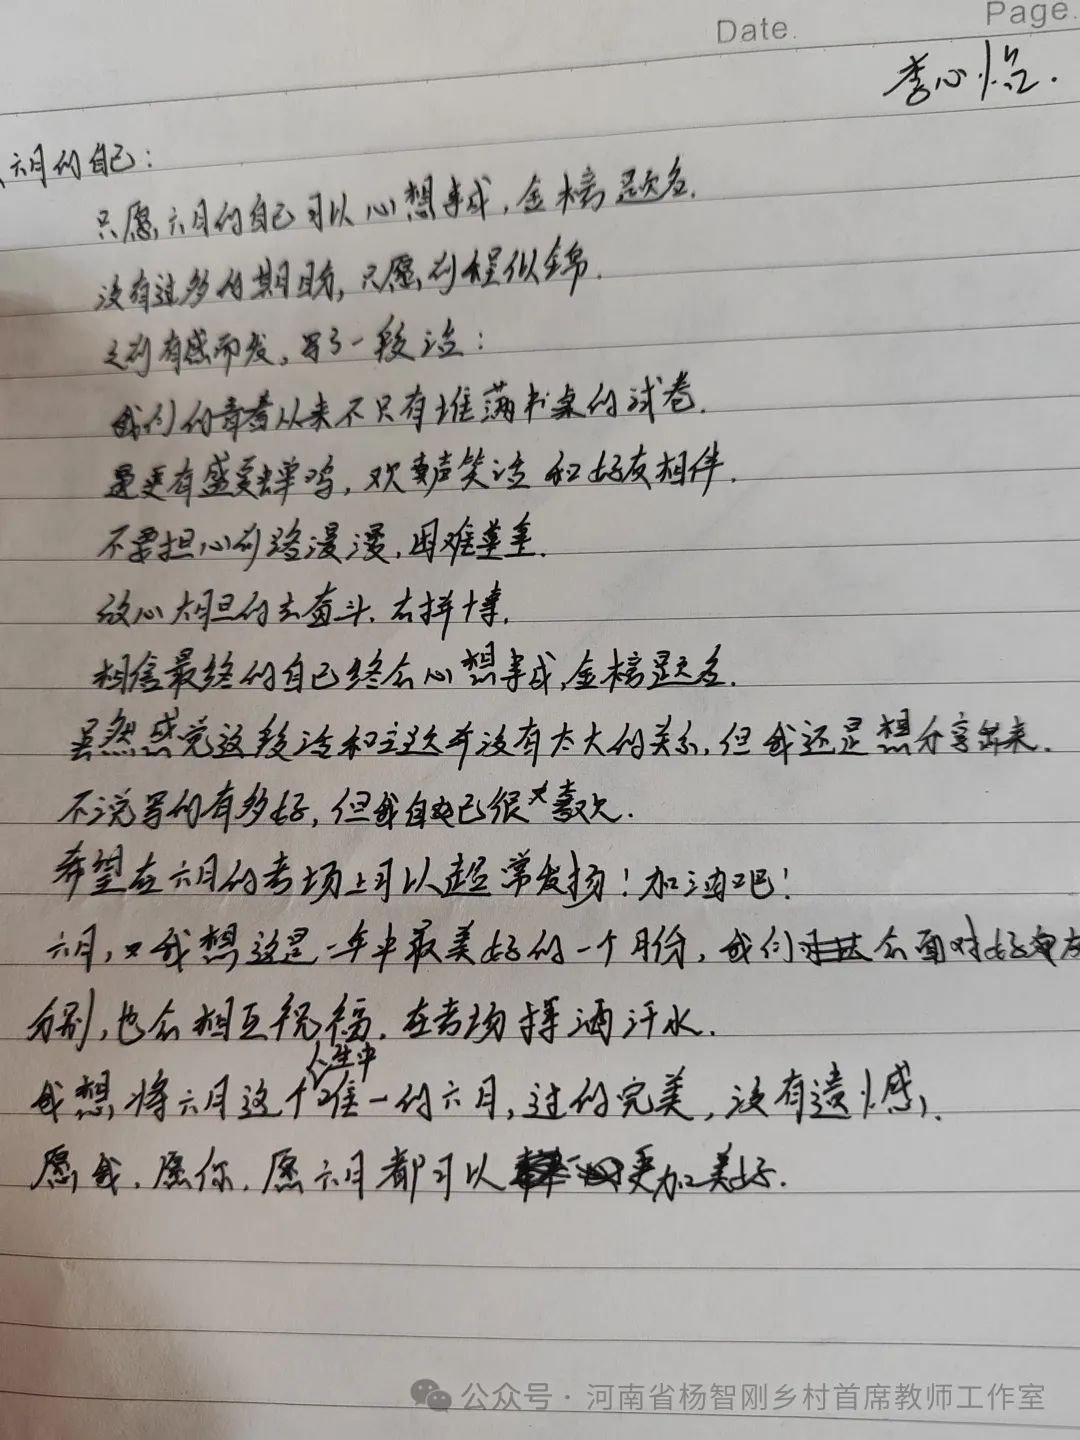 Date.
Page.
李心怡.
六月的自己:
只愿六月的自己可以心想事成,金榜题名.
没有过多的期盼,只愿前程似锦.
之前有感而发,写了一段话:
我们的青春从来不只有堆满书桌的试卷.
更有盛夏蝉鸣,欢声笑语和好友相伴.
不要担心前路漫漫,困难重重.
放心大胆的去奋斗.去拼搏.
相信最终的自己终会心想事成,金榜题名.
虽然感觉这段话和主题并没有太大的关系,但我还是想分享出来.
不说写的有多好,但我自己很喜欢.
希望在六月的考场上可以超常发扬!加油吧!
六月,我想这是一年中最美好的一个月份,我们会面对好友
分别,也会相互祝福.在考场挥洒汗水.
我想将六月这个人生中唯一的六月,过的完美,没有遗憾.
愿我.愿你.愿六月都可以更加美好.
公众号·河南省杨智刚乡村首席教师工作室